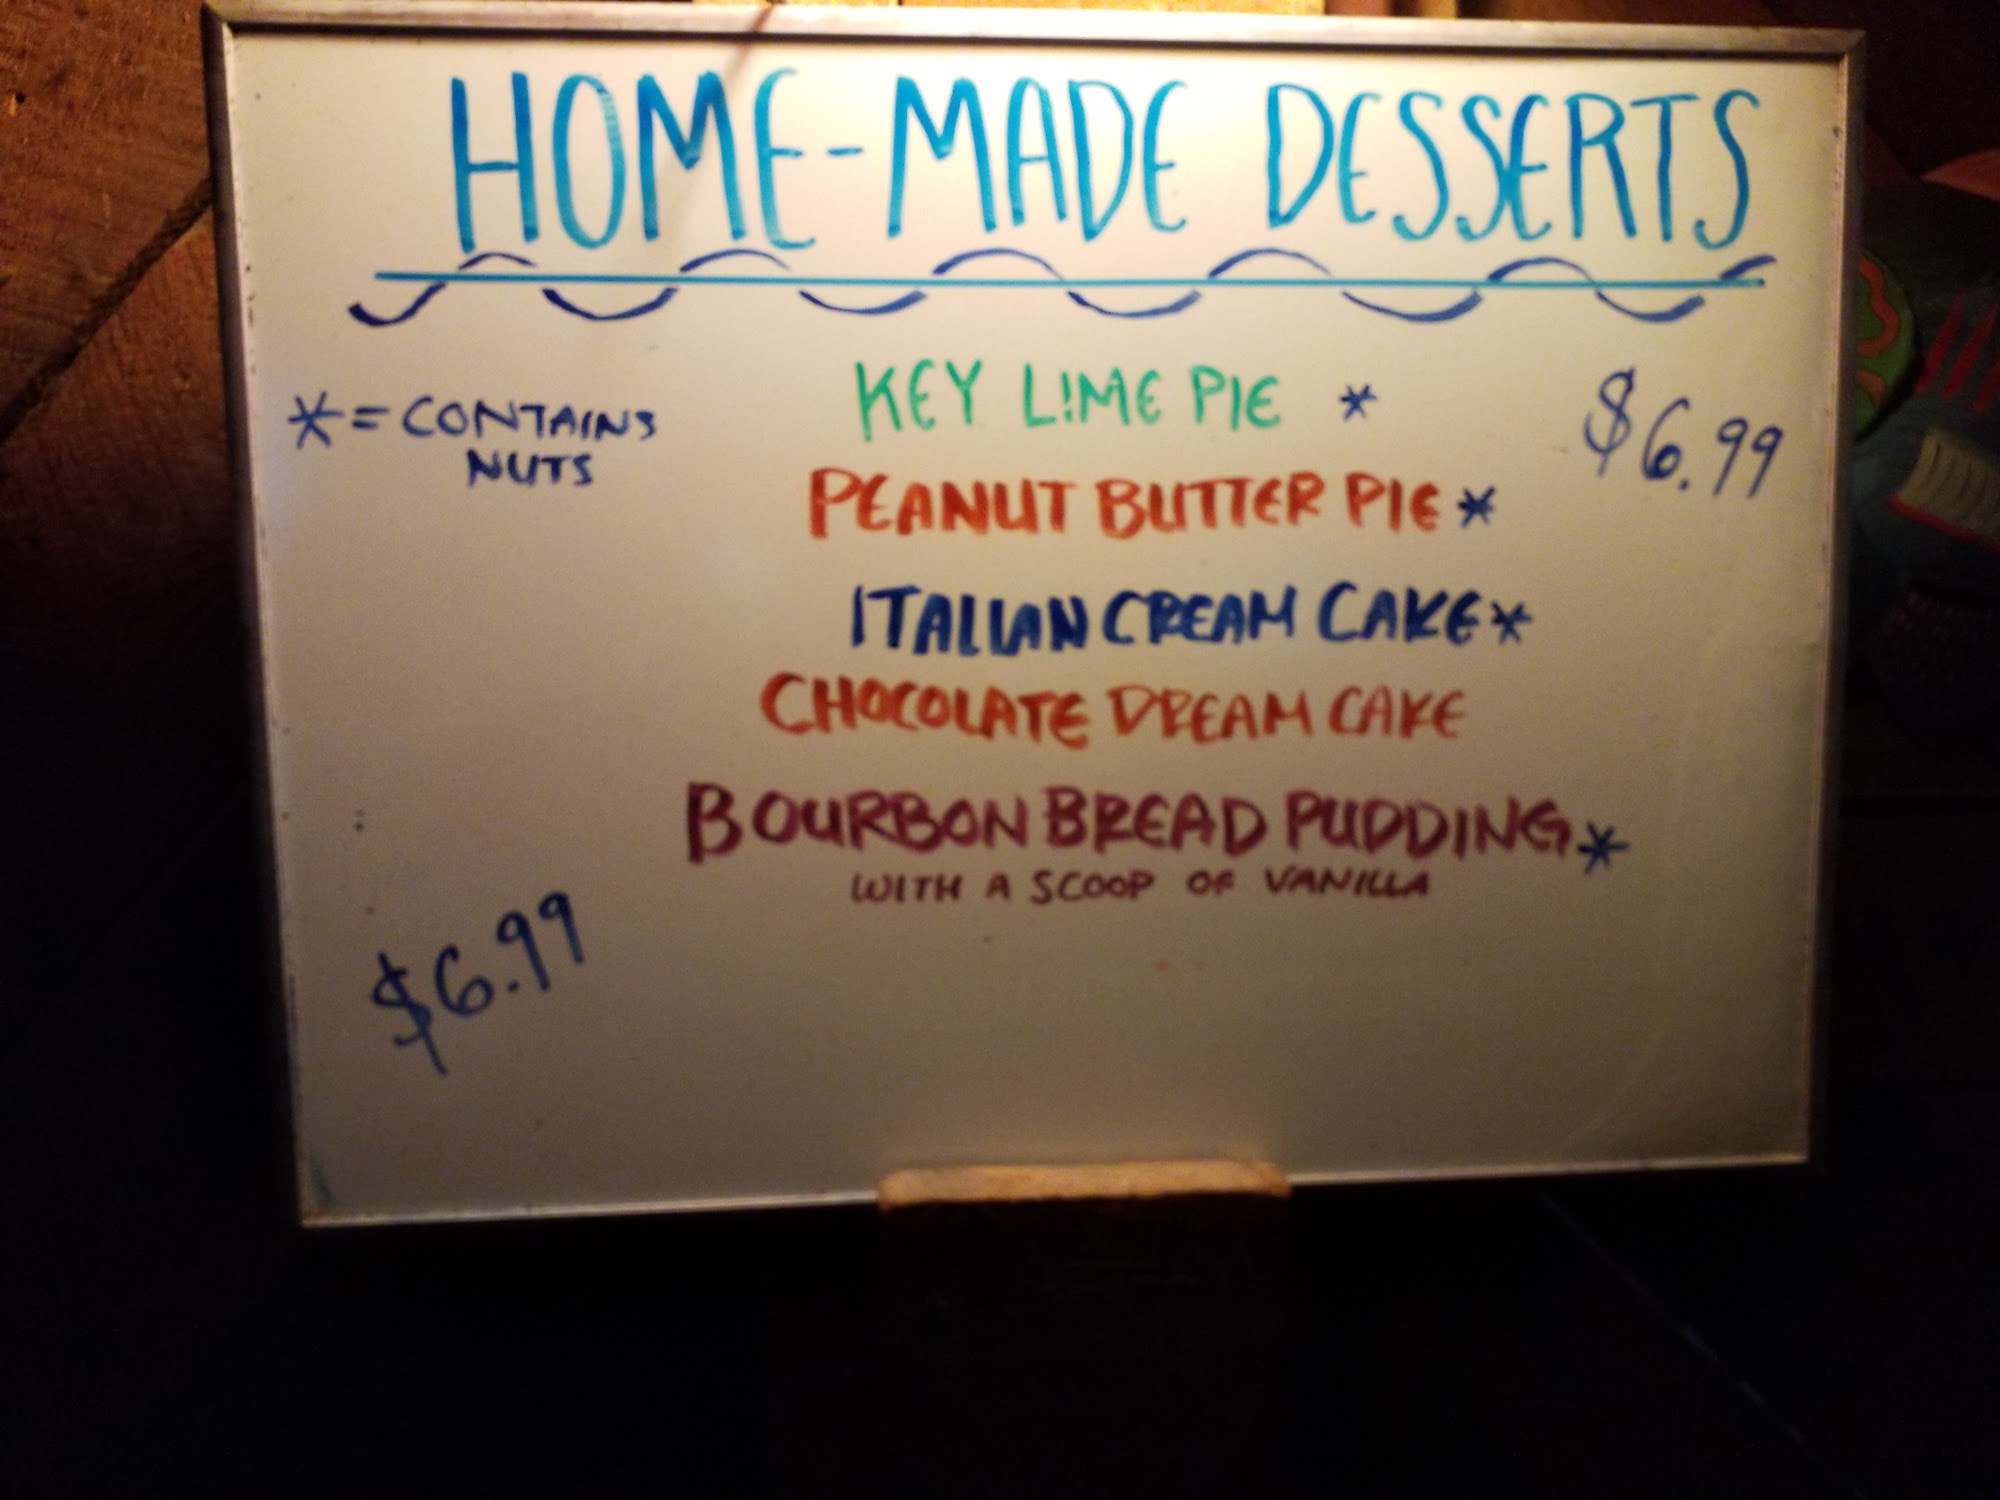 HOME-MADE DESSERTS
* = CONTAINS
NUTS
KEY LIME PIE *
$6.99
PEANUT BUTTER PIE *
ITALIAN CREAM CAKE *
CHOCOLATE DREAM CAKE
BOURBON BREAD PUDDING *
WITH A SCOOP OF VANILLA
$6.99